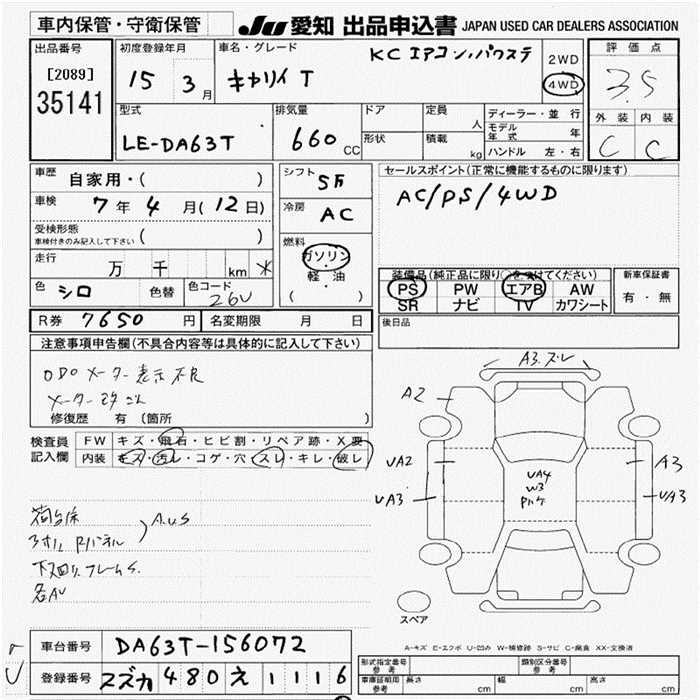 車内保管・守衛保管
JU 愛知 出品申込書 JAPAN USED CAR DEALERS ASSOCIATION
出品番号
[2089]
35141
初度登録年月
15 年 3 月
車名・グレード
KC エアコン,パワステ
キャリイ T
2WD
4WD
評価点
3.5
外装 内装
C C
型式
LE-DA63T
排気量
660 CC
ドア
形状
定員
人
積載
kg
ディーラー・並行
モデル年式 年
ハンドル 左・右
車歴 自家用・( )
車検 7年 4月(12日)
受検形態
車検付きのみ記入して下さい ( )
走行 万 千 km *
色 シロ 色替
色コード 26U
シフト 5万
冷房 AC
燃料
ガソリン
軽・油
( )
セールスポイント(正常に機能するものに限ります)
AC/PS/4WD
装備品(純正品に限り○をつけてください)
PS PW エアB AW
SR ナビ TV カワシート
新車保証書
有・無
R券 7650 円 名変期限 月 日
後日品
注意事項申告欄(不具合内容等は具体的に記入して下さい)
ODOメーター表示不良
メーター改ざん
修復歴 有 (箇所 )
検査員記入欄
FW キズ・飛石・ヒビ割・リペア跡・X要
内装 キズ・汚レ・コゲ・穴・スレ・キレ・破レ
A.U.S
下廻り.フレームS.
各AU
A3.ズレ
A2
UA2
UA3
A3
UA3
UA4
W3
スペア
A-キズ E-エクボ U-凹み W-補修跡 S-サビ C-腐食 XX-交換済
車台番号 DA63T-156072
登録番号 スズカ 480 え 1116
形式指定番号 参考
類別区分番号 参考
車庫証明用 参考 長さ cm 幅 cm 高さ cm